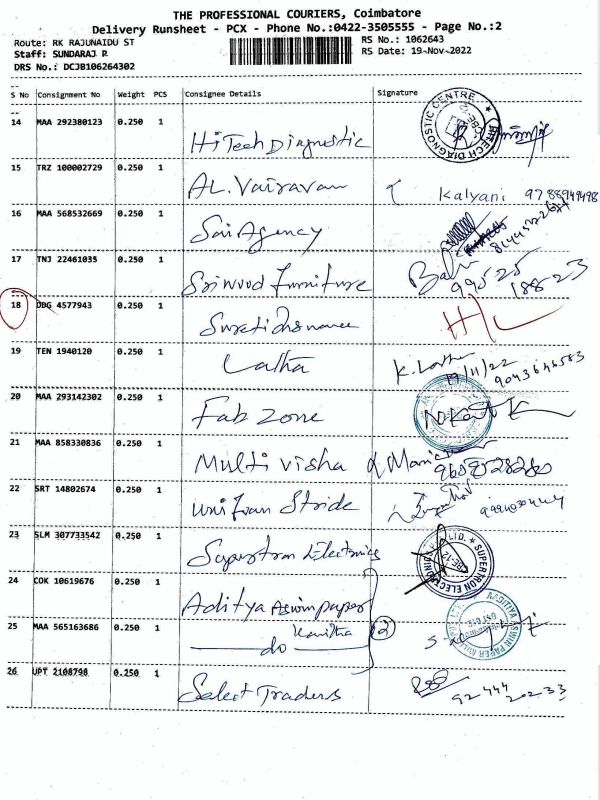 THE PROFESSIONAL COURIERS, Coimbatore
Delivery Runsheet - PCX - Phone No.:0422-3505555 - Page No.:2
Route: RK RAJUNAIDU ST RS No.: 1062643
Staff: SUNDARAJ P RS Date: 19-Nov-2022
DRS No.: DCJB106264302
S No Consignment No Weight PCS Consignee Details Signature
14 MAA 292380123 0.250 1 HiTech Diagnostic
15 TRZ 100002729 0.250 1 AL. Vairavan Kalyani
16 MAA 568532669 0.250 1 Sai Agency
17 TNJ 22461035 0.250 1 Sriwood Furniture 99525
188-23
18 DDG 4577943 0.250 1
19 TEN 1940120 0.250 1 Latha K. Latha
19/11/22 9043646583
20 MAA 293142302 0.250 1 Fab Zone
21 MAA 858330836 0.250 1 Multi visha
22 SRT 14802674 0.250 1 Stride
23 SLM 307733542 0.250 1 Supertron Electronics
24 COK 10619676 0.250 1 Aditya Aswin paper
25 MAA 565163686 0.250 1 do Kavitha 2
26 UPT 2108798 0.250 1 Select Traders
92444
20233